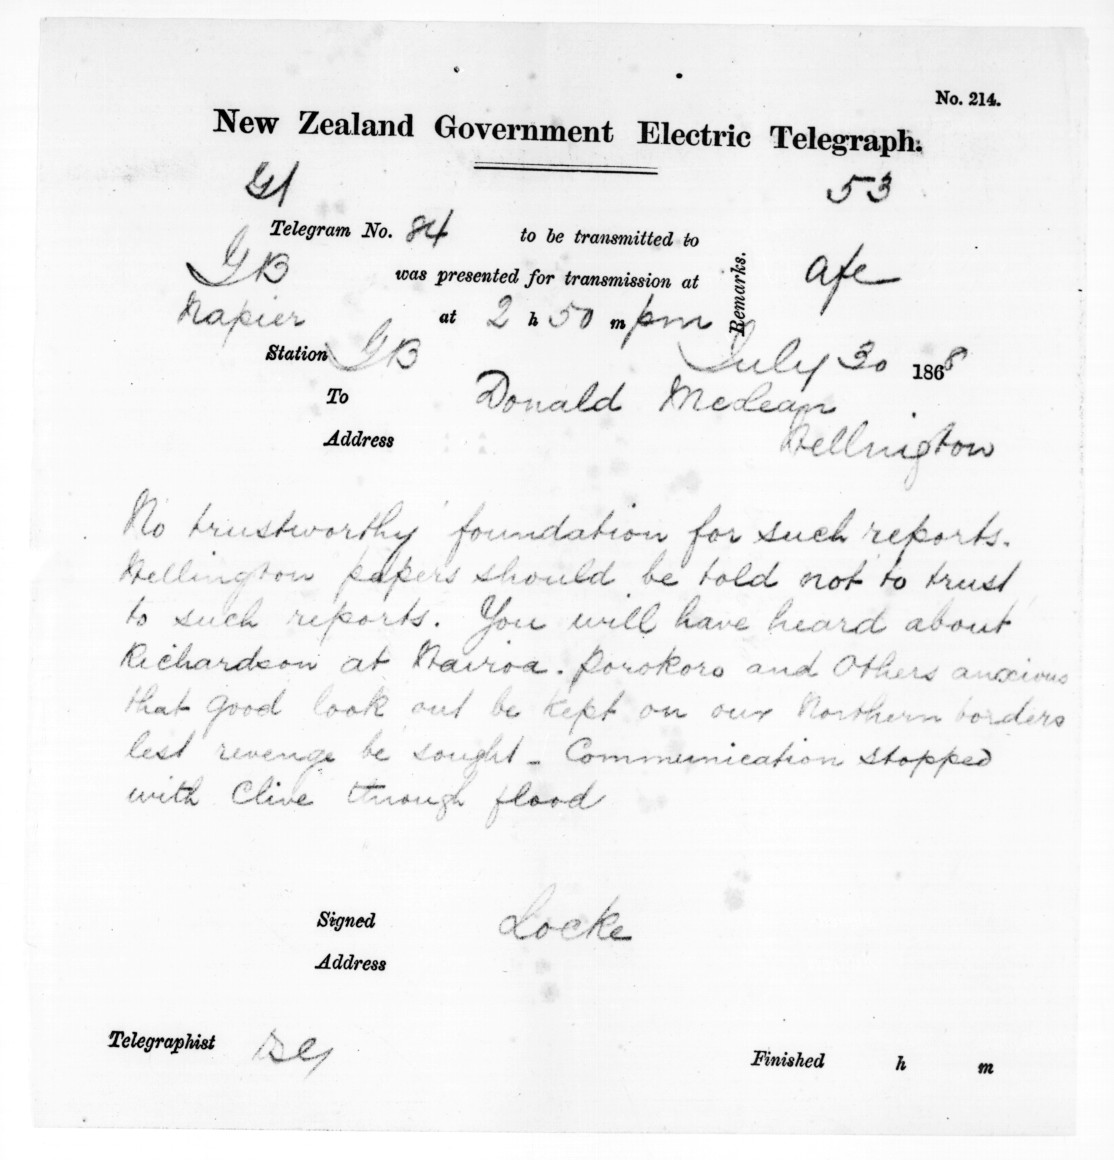 No. 214.
New Zealand Government Electric Telegraph.
53
Telegram No. 84 to be transmitted to
GB was presented for transmission at
Remarks.
Napier at 2 h 50 m pm
Station GB July 30 1868
To Donald McLean
Address Wellington
No trustworthy foundation for such reports.
Wellington papers should be told not to trust
to such reports. You will have heard about
Richardson at Wairoa. Porokoro and others anxious
that good look out be kept on our Northern borders
lest revenge be sought - Communication stopped
with Clive through flood
Signed Locke
Address
Telegraphist
Finished h m